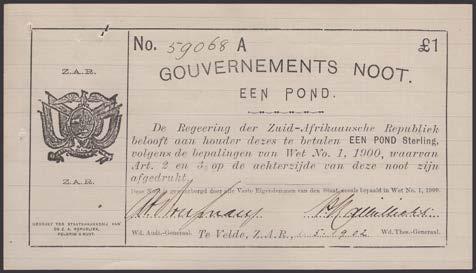 Z.A.R.
Z.A.R.
GEDRUKT TER STAATSDRUKKERIJ VAN
DE Z. A. REPUBLIEK,
PELGRIM'S RUST.
No. 59068 A £1
GOUVERNEMENTS NOOT.
EEN POND.
De Regeering der Zuid-Afrikaansche Republiek
belooft aan houder dezes te betalen EEN POND Sterling,
volgens de bepalingen van Wet No. 1, 1900, waarvan
Art. 2 en 3 op de achterzijde van deze noot zijn
afgedrukt.
Deze Noot is gewaarborgd door alle Vaste Eigendommen van den Staat, zooals bepaald in Wet No. 1, 1900.
Wd. Audt.-Generaal. Te Velde, Z.A.R., 1.5.1902 Wd. Thes.-Gener.